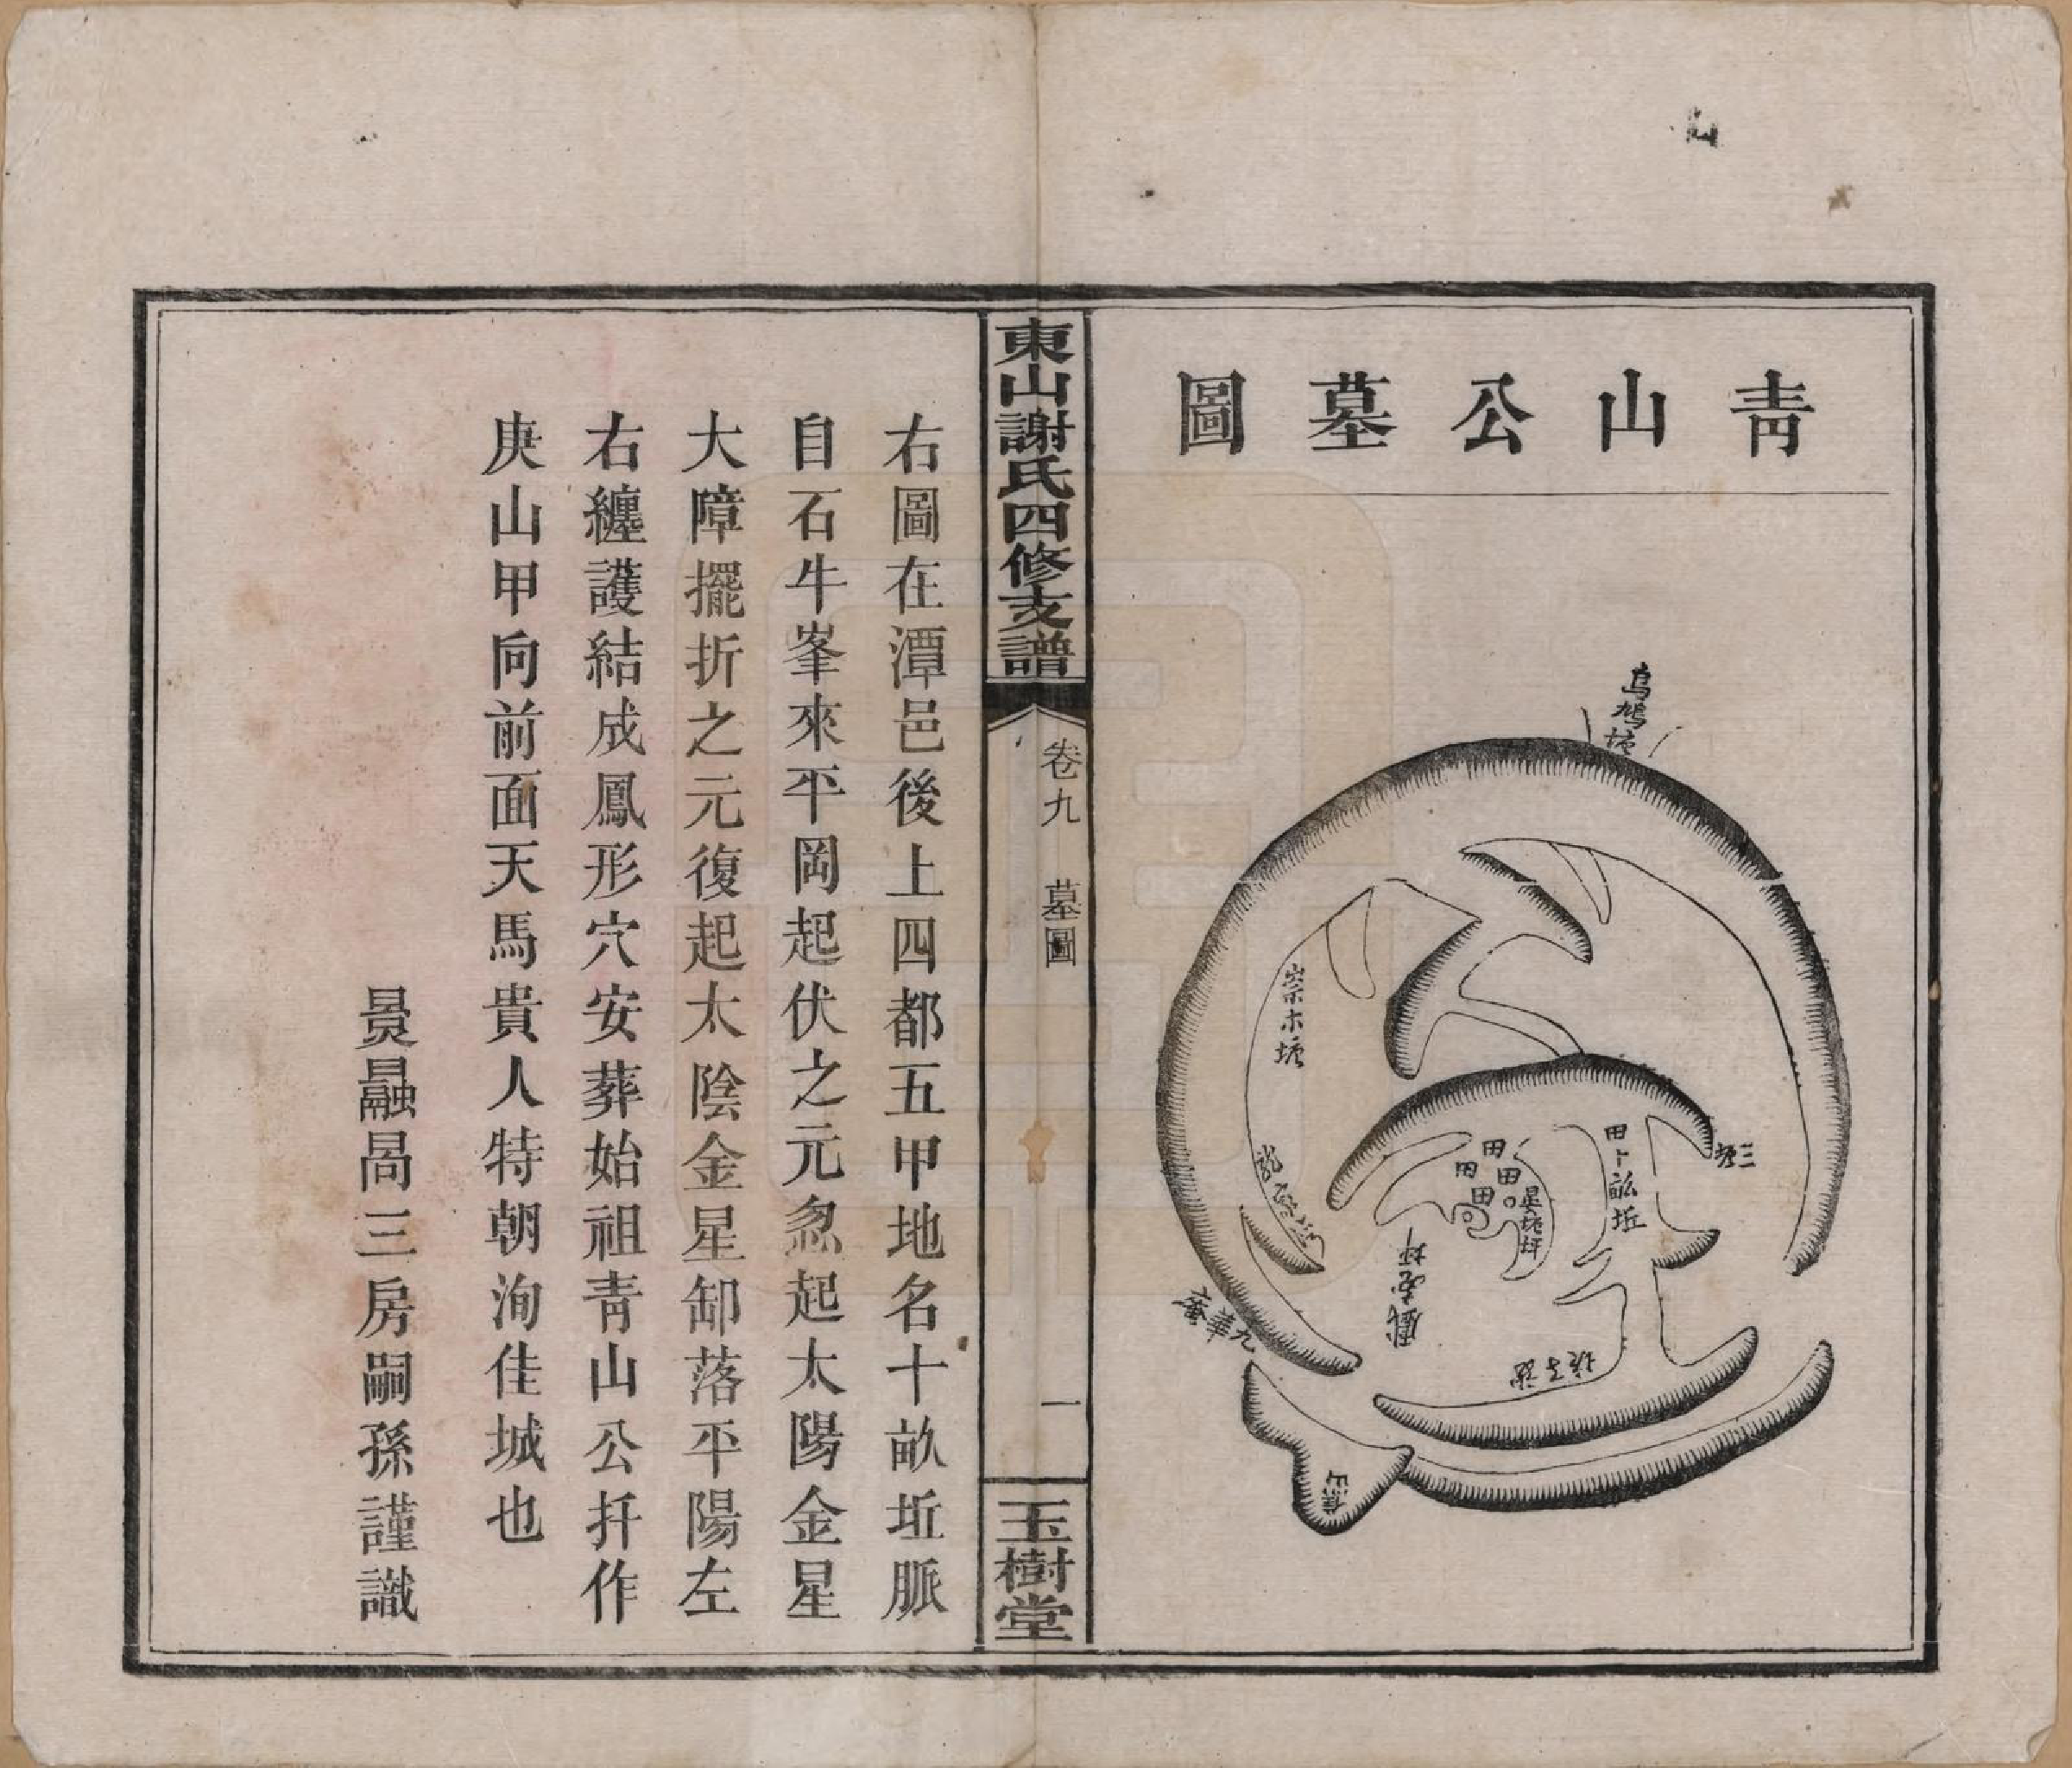 靑山公墓圖
烏鳩塘
崇木塘
三塘
田卜畆坵
田
田
田
田
九華庵
東山謝氏四修支譜
卷九
墓圖
一
玉樹堂
右圖在潭邑後上四都五甲地名十畝坵脈
自石牛峯來平岡起伏之元忽起太陽金星
大障擺折之元復起太陰金星卸落平陽左
右纏護結成鳳形穴安葬始祖靑山公扦作
庚山甲向前面天馬貴人特朝洵佳城也
三房嗣孫謹識